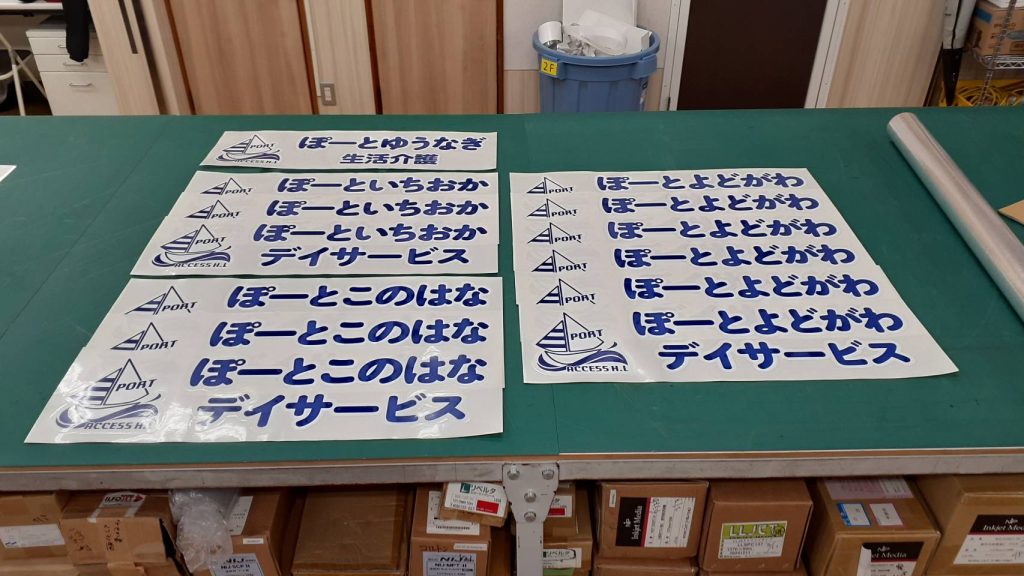 2F
PORT
ACCESS H.I.
ぽーとゆうなぎ
生活介護
PORT
ぽーといちおか
PORT
ぽーといちおか
PORT
ACCESS H.I.
ぽーといちおか
デイサービス
PORT
ぽーとこのはな
PORT
ぽーとこのはな
PORT
ACCESS H.I.
ぽーとこのはな
デイサービス
PORT
ぽーとよどがわ
PORT
ぽーとよどがわ
PORT
ぽーとよどがわ
PORT
ぽーとよどがわ
PORT
ぽーとよどがわ
PORT
ACCESS H.I.
ぽーとよどがわ
デイサービス
リベルタ
Inkjet Media
LLJET
Inkjet Media
Inkjet Media